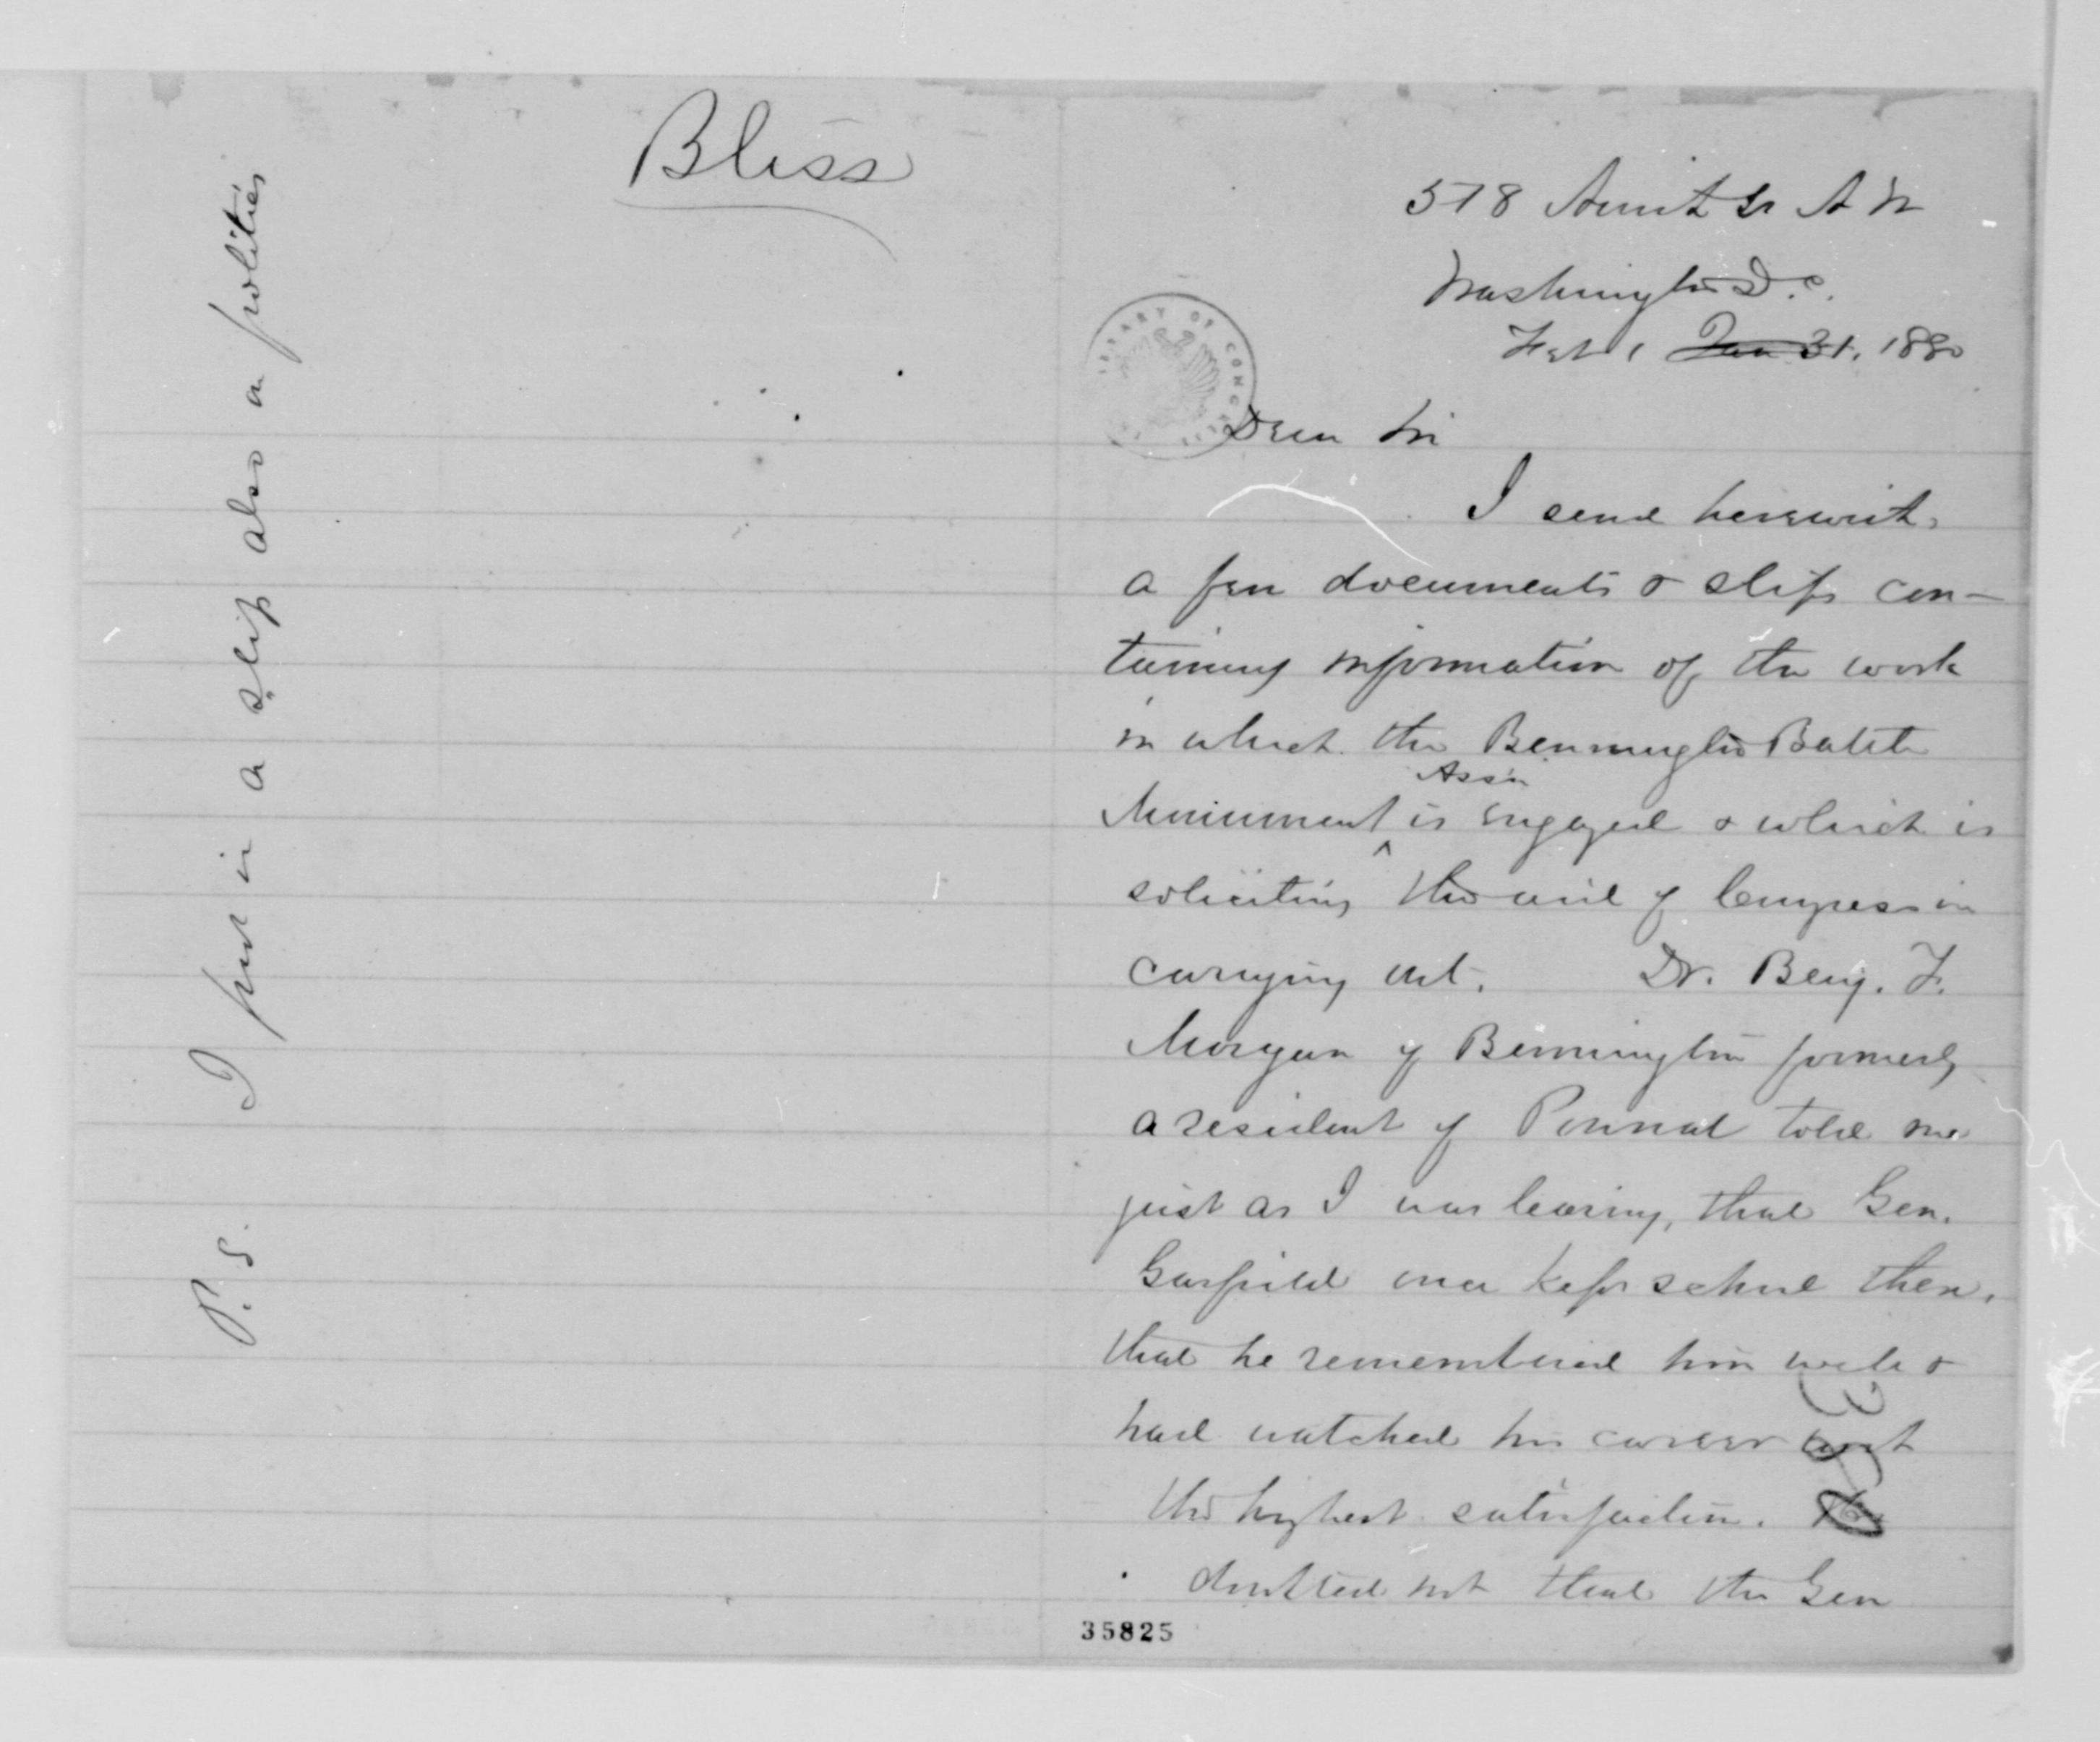 Bliss
P.S. I put in a slip also on politics
Washington D.C.
Feb 1 Jan 31, 1880
LIBRARY OF CONGRESS
Dear Sir
I send herewith
a few documents & slips con-
taining information of the work
in which the Bennington Battle
Assn
Monument ^ is engaged & which is
soliciting the aid of Congress in
carrying out. Dr. Benj. F.
Morgan of Bennington formerly
a resident of Pownal told me
just as I was leaving, that Gen.
Garfield once kept school there,
that he remembered him well &
had watched his career with
the highest satisfaction. He
doubted not that the Gen
35825